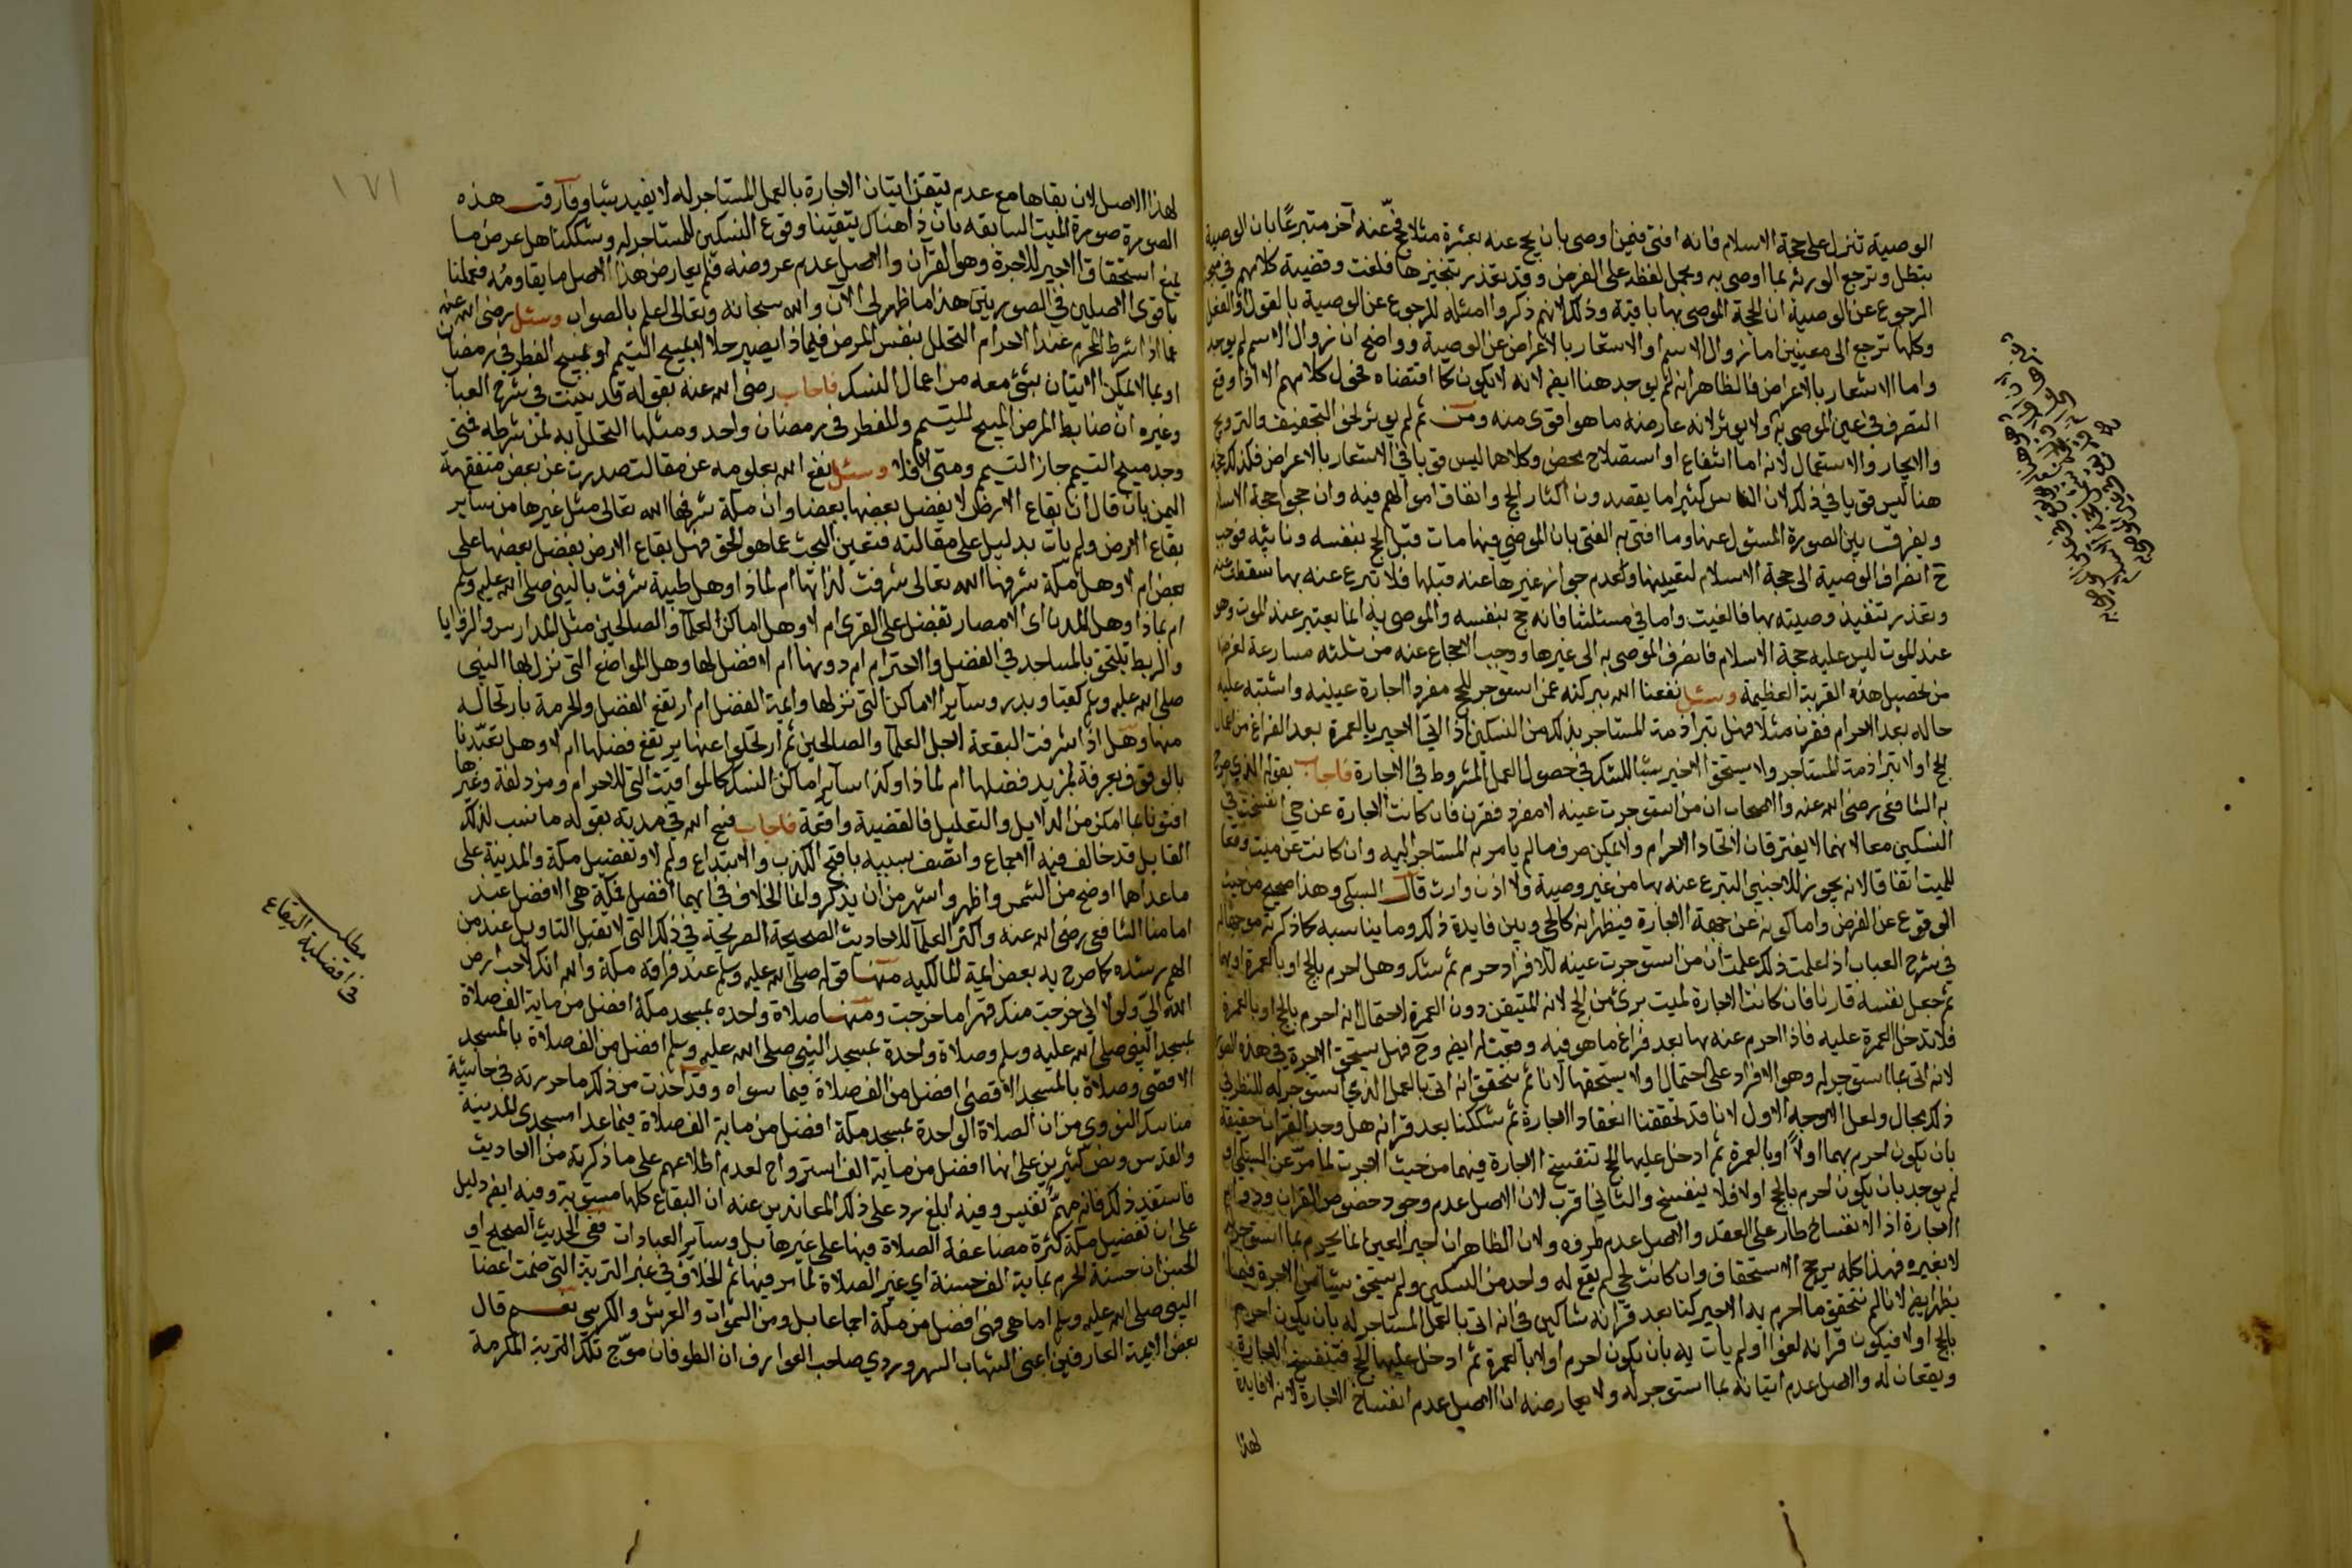 الوصية تنزل على حجة الاسلام فانه افتى فيمن اوصى بان يحج عنه بعشرة مثلا فحج عنه آخر متبرعًا بان الوصية
تبطل وترجع الورثه بما اوصى به ويحمل لفظه على الفرض وقد تعذر تنجيزها فلغت وقضية كلامهم في
الرجوع عن الوصية ان الحجة الموصى بها باقية وذلك لانهم ذكروا امثله للرجوع عن الوصية بالقول او الفعل
وكلها ترجع الى معنيين اما زوال الاسم او الاشعار بالاعراض عن الوصية وواضح ان زوال الاسم لم يوجد
واما الاشعار بالاعراض فالظاهر انه لم يوجد هنا ايضا لانه لا يكون كما اقتضاه فحوى كلامهم الا اذا وقع
التصرف في عين الموصى به ولا يؤثر لانه عارضه ما هو اقوى منه ومن ثم لم يؤثر نحو التجفيف والتزويج
والايجار والاستعمال لانه اما انتفاع او استصلاح محض وكلاهما ليس قويا في الاشعار بالاعراض فكذلك
هنا ليس قويا في ذلك لان الناس كثيرا ما يقصدون اكثار الحج وانفاق اموالهم فيه وان حجوا حجة الاسلام
ويفرق بين الصورة المسئول عنها وما افتى به الفتى بان الموصي فيها مات قبل الحج بنفسه ونائبه فوجب
ح انصراف الوصية الى حجة الاسلام لتعيينها ولعدم جواز غيرها عنه قبلها فلا تبرع عنه بها سقطت عنه
وتعذر تنفيذ وصيته بها فالغيت واما في مسئلتنا فانه حج بنفسه والموصى به انما يعتبر عند الموت وهو
عند الموت ليس عليه حجة الاسلام فانصرف الموصى به الى غيرها ووجب الاحجاج عنه من ثلثه مسارعة لغرضه
من تحصيل هذه القربة العظيمة وسئل نفعنا الله ببركته عمن استوجر للحج مفردا اجارة عينيه واشتبه عليه
حاله بعد الاحرام فقرن مثلا فهل تبرا ذمة المستاجر بذلك من النسكين اذا اتى الاجير بالعمرة بعد الفراغ من اعمال
الحج اولا تبرا ذمة المستاجر ولا يستحق الاجير شيئا للشك في حصول العمل المشروط في الاجارة فاجاب بقوله الذي صرح
به الشافعي رضى الله عنه والاصحاب ان من استوجرت عينه لا مفرد فقرن فان كانت الاجارة عن حي انفسخت في
النسكين معا لانهما لا يفترقان لاتحاد الاحرام ولا يمكن صرف ما لم يامر به المستاجر اليه وان كانت عن ميت وقعا
للميت اتفاقا لانه يجوز للاجنبي التبرع عنه بهما من غير وصية ولا اذن وارث قال السبكي وهذا صحيح من حيث
الوقوع عن الفرض واما كونه عن جهة الاجارة فيظهر انه كالحي وبين فايدة ذلك وما يناسبه كما ذكرته
في شرح العباب اذا علمت ذلك علمت ان من استوجرت عينه للافراد حرم ثم شك وهل احرم بالحج او بالعمرة او بهما
ثم جعل نفسه قارنا فان كانت الاجارة لميت برئ من الحج لانه المتيقن دون العمرة لاحتمال انه احرم بالحج او بالعمرة
فلا تدخل العمرة عليه فاذا احرم عنه بها بعد فراغ ما هو فيه وقعت له ايضا وح فهل يستحق الاجرة في هذه
لانه اتى بما استوجر له وهو الافراد على احتمال اولا يستحقها لانا لم نتحقق انه اتى بالعمل الذي استوجر له للنظر في
ذلك مجال ولعل الاوجه الاول لانا قد تحققنا انعقاد الاجارة ثم شككنا بعد قرانه هل وجد القران حقيقة
بان يكون احرم بهما اولا او بالعمرة ثم ادخل عليها الحج تنفسخ الاجارة فيهما من حيث الاجرت لما مر عن السبكي او
لم يوجد بان يكون احرم بالحج اولا فلا ينفسخ والثاني اقرب لان الاصل عدم وجود خصوص القران ودوام
الاجارة اذ الانفساخ طار على العقد والاصل عدم طروه ولان الظاهر ان اجير العين انما يحرم بما استوجر له
لا بغيره فهذا كله يرجح الاستحقاق وان كانت لحي لم يقع له واحد من النسكين ولم يستحق شيئا من الاجرة فيما
يظهر ايضا لانا لم نتحقق ما احرم به الاجير كنا بعد قرانه شاكين في انه اتى بالعمل المستاجر له بان يكون احرم
بالحج اولا فيكون قرانه لغوا اولم يات به بان يكون احرم اولا بالعمرة ثم ادخل عليها الحج فتنفسخ الاجارة
ويقعان له والاصل عدم اتيانه بما استوجر له ولا يعارضه ان الاصل عدم انفساخ الاجارة لانه لا فايدة
لهذا
١٧١
لهذا الاصل لان بقاها مع عدم تيقن اتيان الاجارة بالعمل المستاجر له لا يفيد شيئا وفارقت هذه
الصورة صورة الميت السابقه بان ذا هناك تيقينا وقوع النسكين للمستاجر له وشككنا هل عرض ما
يمنع استحقاق الاجير للاجرة وهو القران والاصل عدم عروضه فلم يعارض هذا الاصل ما يقاومه فعملنا
باقوى الاصلين في الصورتين هذا ما ظهر لي الآن والله سبحانه وتعالى اعلم بالصواب وسئل رضى الله عنه
عما اذا شرط المحرم عند الاحرام التحلل بنفس المرض فبماذا يصير حلالا بمبيح التيمم او بمبيح الفطر في رمضان
او بما لا يمكن الاتيان بشئ معه من اعمال النسك فاجاب رضى الله عنه بقوله قد بينت في شرح العباب
وغيره ان ضابط المرض المبيح للتيمم والفطر في رمضان واحد ومثلها التحلل به لمن شرطه فمتى
وجد مبيح التيمم جاز التيمم ومتى لا فلا وسئل نفع الله بعلومه عن مقالت صدرت عن بعض متفقهة
اليمن بان قال ان بقاع الارض لا يفضل بعضها بعضا وان مكة شرفها الله تعالى مثل غيرها من ساير
بقاع الارض ولم يات بدليل على مقالته فتعين البحث عما هو الحق فهل بقاع الارض يفضل بعضها على
بعض ام لا وهل مكة شرفها الله تعالى شرفت لذاتها ام لماذا وهل طيبة شرفت بالنبي صلى الله عليه وسلم
ام بماذا وهل المدن اى الامصار تفضل على القرى ام لا وهل اماكن العلما والصالحين مثل المدارس والزوايا
والربط تلتحق بالمساجد في الفضل والاحترام ام دونها ام لا فضل لها وهل المواضع التي نزل بها النبي
صلى الله عليه وسلم كقبا وبدر وساير الاماكن التي نزلها وافية الفضل ام ارتفع الفضل والحرمة بارتحاله
منها وهل اذا شرفت البقعة لاجل العلما والصالحين ثم ارتحلوا عنها يرتفع فضلها ام لا وهل تعبدنا
بالوقوف بعرفة لمزيد فضلها ام لماذا وكذا ساير اماكن النسك كالمواقيت التي للاحرام ومزدلفة وغيرها
افتونا بما امكن من الدلايل والتعليل فالقضية واقعة فاجاب فسح الله في مدته بقوله ما نسب لذلك
القايل قد خالف فيه الاجماع واتصف بسببه باقبح الكذب والابتداع ولم لا وتفضيل مكة والمدينة على
ما عداها اوضح من الشمس واظهر واشهر من ان يذكر وانما الخلاف في ايهما افضل فمكة هى الافضل عند
امامنا الشافعي رضى الله عنه واكثر العلما للاحاديث الصحيحة الصريحة في ذلك التي لا تقبل التاويل عند من
الهم رشده كما صرح به بعض ايمة المالكيه منها قوله صلى الله عليه وسلم عند فراقه مكة والله انك لاحب ارض
الله الي ولولا اني خرجت منك قهرا ما خرجت ومنها صلاة واحده بمسجد مكة افضل من ماية الف صلاة
بمسجد النبي صلى الله عليه وسلم وصلاة واحدة بمسجد النبي صلى الله عليه وسلم افضل من الف صلاة بالمسجد
الاقصى وصلاة بالمسجد الاقصى افضل من الف صلاة فيما سواه وقد اخذت من ذلك ما حررته في حاشية
مناسك النووي من ان الصلاة الواحدة بمسجد مكة افضل من ماية الف صلاة فيما عدا مسجدى المدينة
والقدس ونص كثيرين على انها افضل من ماية الف استرواح لعدم اطلاعهم على ما ذكرته من الاحاديث
فاستفد ذلك فانه مهم نفيس وفيه ابلغ رد على ذلك المعاند بن عنه ان البقاع كلها مستوية وفيه ايضا دليل
على ان تفضيل مكة كثرة مضاعفة الصلاة فيها على غيرها بل وساير العبادات ففى الحديث الصحيح او
الحسن ان حسنة الحرم بماية الف حسنة اي غير الصلاة لما مر فيها ثم الخلاف في غير التربة التي ضمت اعضا
النبي صلى الله عليه وسلم اما هى فهى افضل من مكة اجماعا بل ومن السموات والعرش والكرسي نعم قال
بعض الايمة العارفين اعنى الشهاب السهروردي صاحب العوارف ان الطوفان موّج تلك التربة المكرمة
مطلب
في افضلية البقاع